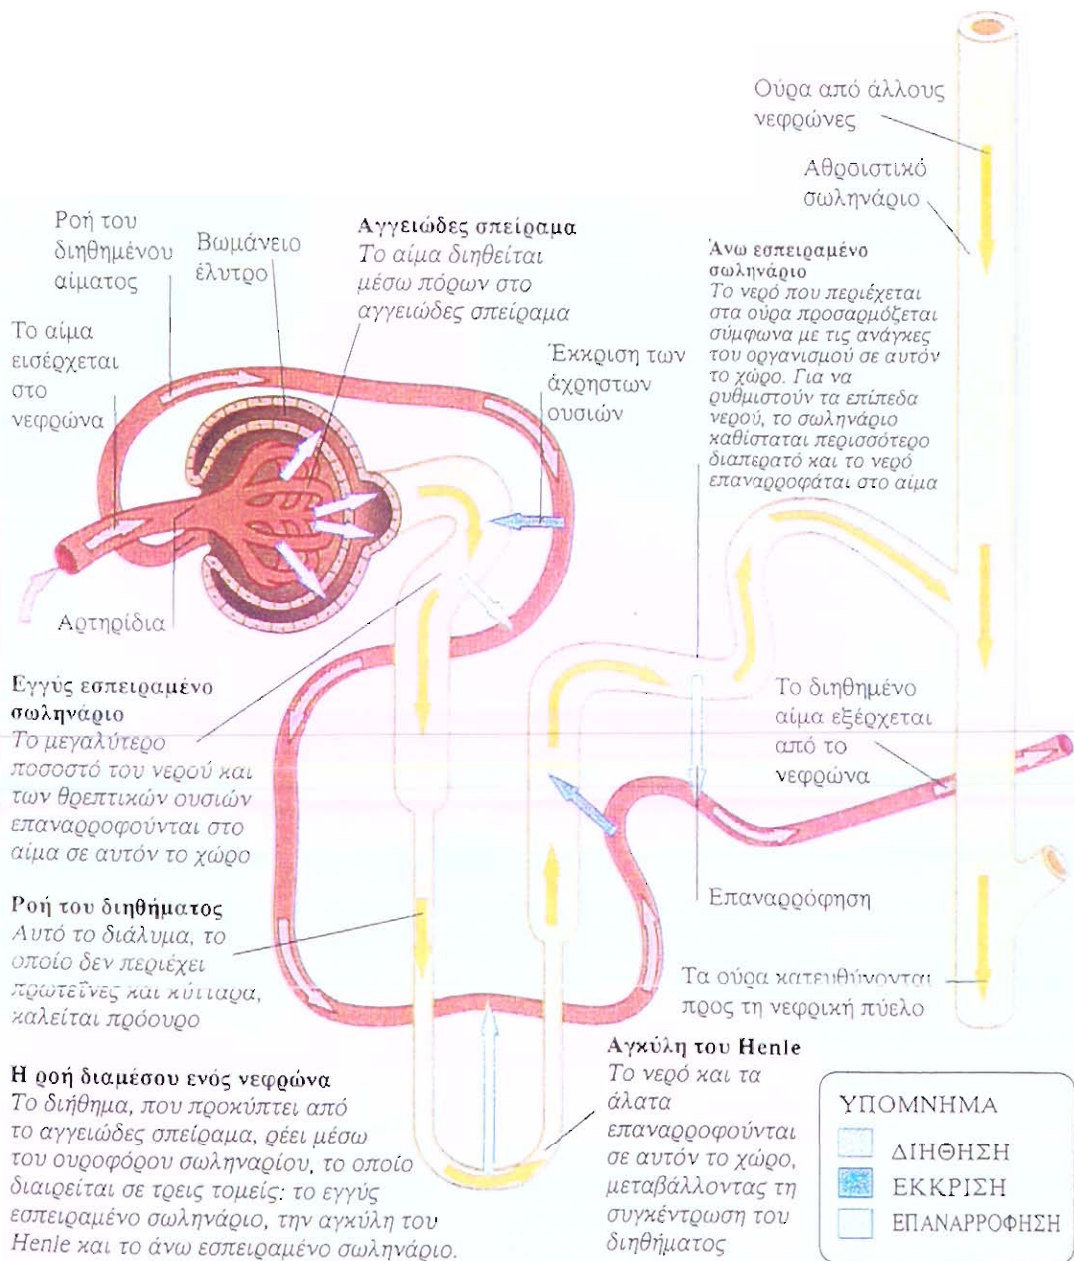 Ούρα από άλλους
νεφρώνες
Αθροιστικό
σωληνάριο
Ροή του
διηθημένου
αίματος
Βωμάνειο
έλυτρο
Αγγειώδες σπείραμα
Το αίμα διηθείται
μέσω πόρων στο
αγγειώδες σπείραμα
Άνω εσπειραμένο
σωληνάριο
Το νερό που περιέχεται
στα ούρα προσαρμόζεται
σύμφωνα με τις ανάγκες
του οργανισμού σε αυτόν
το χώρο. Για να
ρυθμιστούν τα επίπεδα
νερού, το σωληνάριο
καθίσταται περισσότερο
διαπερατό και το νερό
επαναρροφάται στο αίμα
Το αίμα
εισέρχεται
στο
νεφρώνα
Έκκριση των
άχρηστων
ουσιών
Αρτηρίδια
Εγγύς εσπειραμένο
σωληνάριο
Το μεγαλύτερο
ποσοστό του νερού και
των θρεπτικών ουσιών
επαναρροφούνται στο
αίμα σε αυτόν το χώρο
Το διηθημένο
αίμα εξέρχεται
από το
νεφρώνα
Ροή του διηθήματος
Αυτό το διάλυμα, το
οποίο δεν περιέχει
πρωτεΐνες και κύτταρα,
καλείται πρόουρο
Επαναρρόφηση
Τα ούρα κατευθύνονται
προς τη νεφρική πύελο
Η ροή διαμέσου ενός νεφρώνα
Το διήθημα, που προκύπτει από
το αγγειώδες σπείραμα, ρέει μέσω
του ουροφόρου σωληναρίου, το οποίο
διαιρείται σε τρεις τομείς: το εγγύς
εσπειραμένο σωληνάριο, την αγκύλη του
Henle και το άνω εσπειραμένο σωληνάριο.
Αγκύλη του Henle
Το νερό και τα
άλατα
επαναρροφούνται
σε αυτόν το χώρο,
μεταβάλλοντας τη
συγκέντρωση του
διηθήματος
ΥΠΟΜΝΗΜΑ
ΔΙΗΘΗΣΗ
ΕΚΚΡΙΣΗ
ΕΠΑΝΑΡΡΟΦΗΣΗ